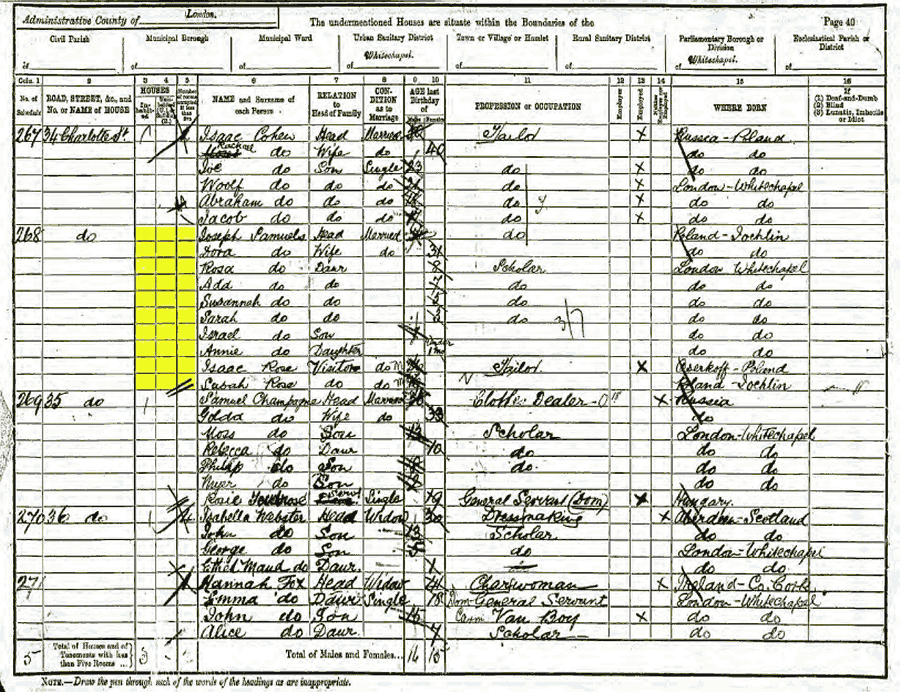 Administrative County of London. The undermentioned Houses are situate within the Boundaries of the Page 40
Civil Parish Municipal Borough Municipal Ward Urban Sanitary District Town or Village or Hamlet Rural Sanitary District Parliamentary Borough or Division Ecclesiastical Parish or District
of of of Whitechapel of of of Whitechapel. of
Coln. 1 2 3 4 5 6 7 8 9 10 11 12 13 14 15 16
No. of Schedule ROAD, STREET, &c., and No. or NAME of HOUSE HOUSES NAME and Surname of each Person RELATION to Head of Family CONDITION as to Marriage AGE last Birthday of PROFESSION or OCCUPATION Employer Employed WHERE BORN If (1) Deaf-and-Dumb (2) Blind (3) Lunatic, Imbecile or Idiot
267 34 Charlotte St 1 Isaac Cohen Head Married Tailor X Russia-Poland
Rachael do Wife do 40 do do
Joe do Son Single 23 do X do do
Woolf do do do do X London-Whitechapel
Abraham do do do do X do do
Jacob do do do do X do do
268 do Joseph Samuels Head Married do Poland-Tochlin
Dora do Wife do 31 do do
Rosa do Daur 8 Scholar London Whitechapel
Ada do do 7 do do do
Susannah do do 5 do do do
Sarah do do 3 do do do
Israel do Son do do
Annie do Daughter do do
Isaac Rose Visitor do Tailor X Poland
Sarah Rose do do Poland-Tochlin
269 35 do 1 Samuel Champagne Head Married Clothes Dealer X Russia
Golda do Wife do 33 do
Moss do Son 13 Scholar London-Whitechapel
Rebecca do Daur 10 do do do
Philip do Son do do do
Myer do Son do do
Rosie Servt Single 19 General Servant (Dom) X Hungary.
270 36 do 1 Isabella Webster Head Widow 30 Dressmaking X Aberdeen-Scotland
John do Son 13 Scholar do do
George do Son do London-Whitechapel
Ethel Maud do Daur do do
271 Hannah Fox Head Widow Charwoman X Ireland-Co. Cork
Emma do Daur Single 18 Dom-General Servant London-Whitechapel
John do Son Van Boy X do do
Alice do Daur Scholar do do
5 Total of Houses and of Tenements with less than Five Rooms 3 Total of Males and Females... 16 15
NOTE.—Draw the pen through such of the words of the headings as are inappropriate.